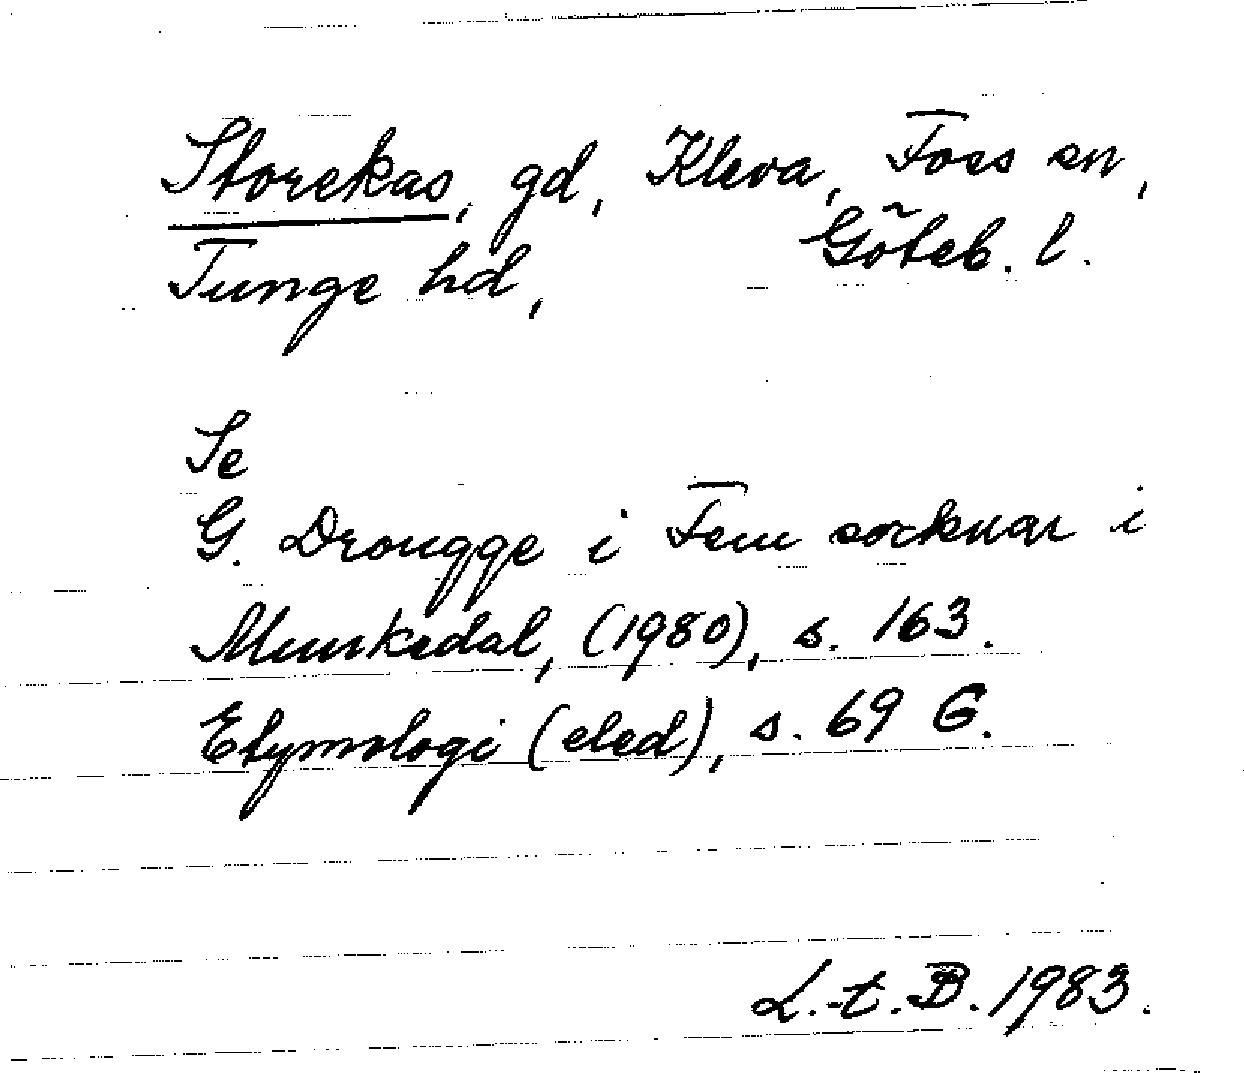 Storekas, gd, Kleva, Foss sn,
Tunge hd, Göteb. l.
Se
G. Drougge i Fem socknar i
Munkedal, (1980), s. 163.
Etymologi (cled), s. 69 G.
L.-t. B. 1983.